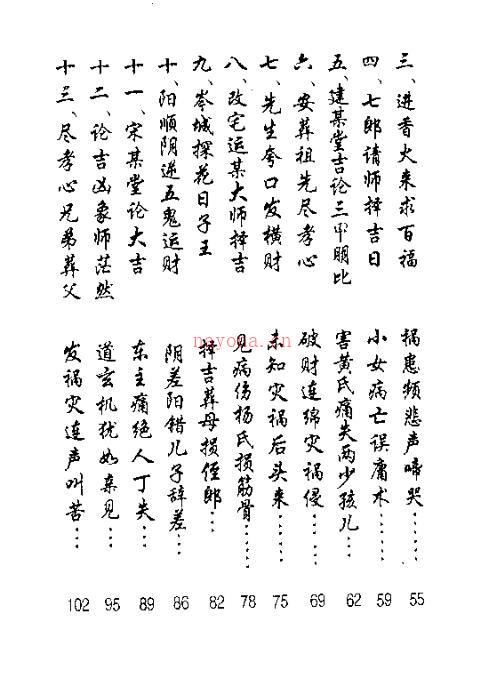 三、进香火来求百福 祸患频悲声啼哭…… 55
四、七郎请师择吉日 小女病亡误庸术…… 59
五、建某堂吉论三甲明比 害黄氏痛失两少孩儿… 62
六、安葬祖先尽孝心 破财连绵灾祸侵…… 69
七、先生夸口发横财 未知灾祸后头来…… 75
八、改宅运某大师择吉 见病伤杨氏损筋骨…… 78
九、岑城探花日子王 择吉葬母损侄郎… 82
十、阳顺阴逆五鬼运财 阴差阳错儿子辞差… 86
十一、宋某堂论大吉 东主痛绝人丁失… 89
十二、论吉凶象师茫然 道玄机犹如亲见… 95
十三、尽孝心兄弟葬父 发祸灾连声叫苦… 102
nayona.cn